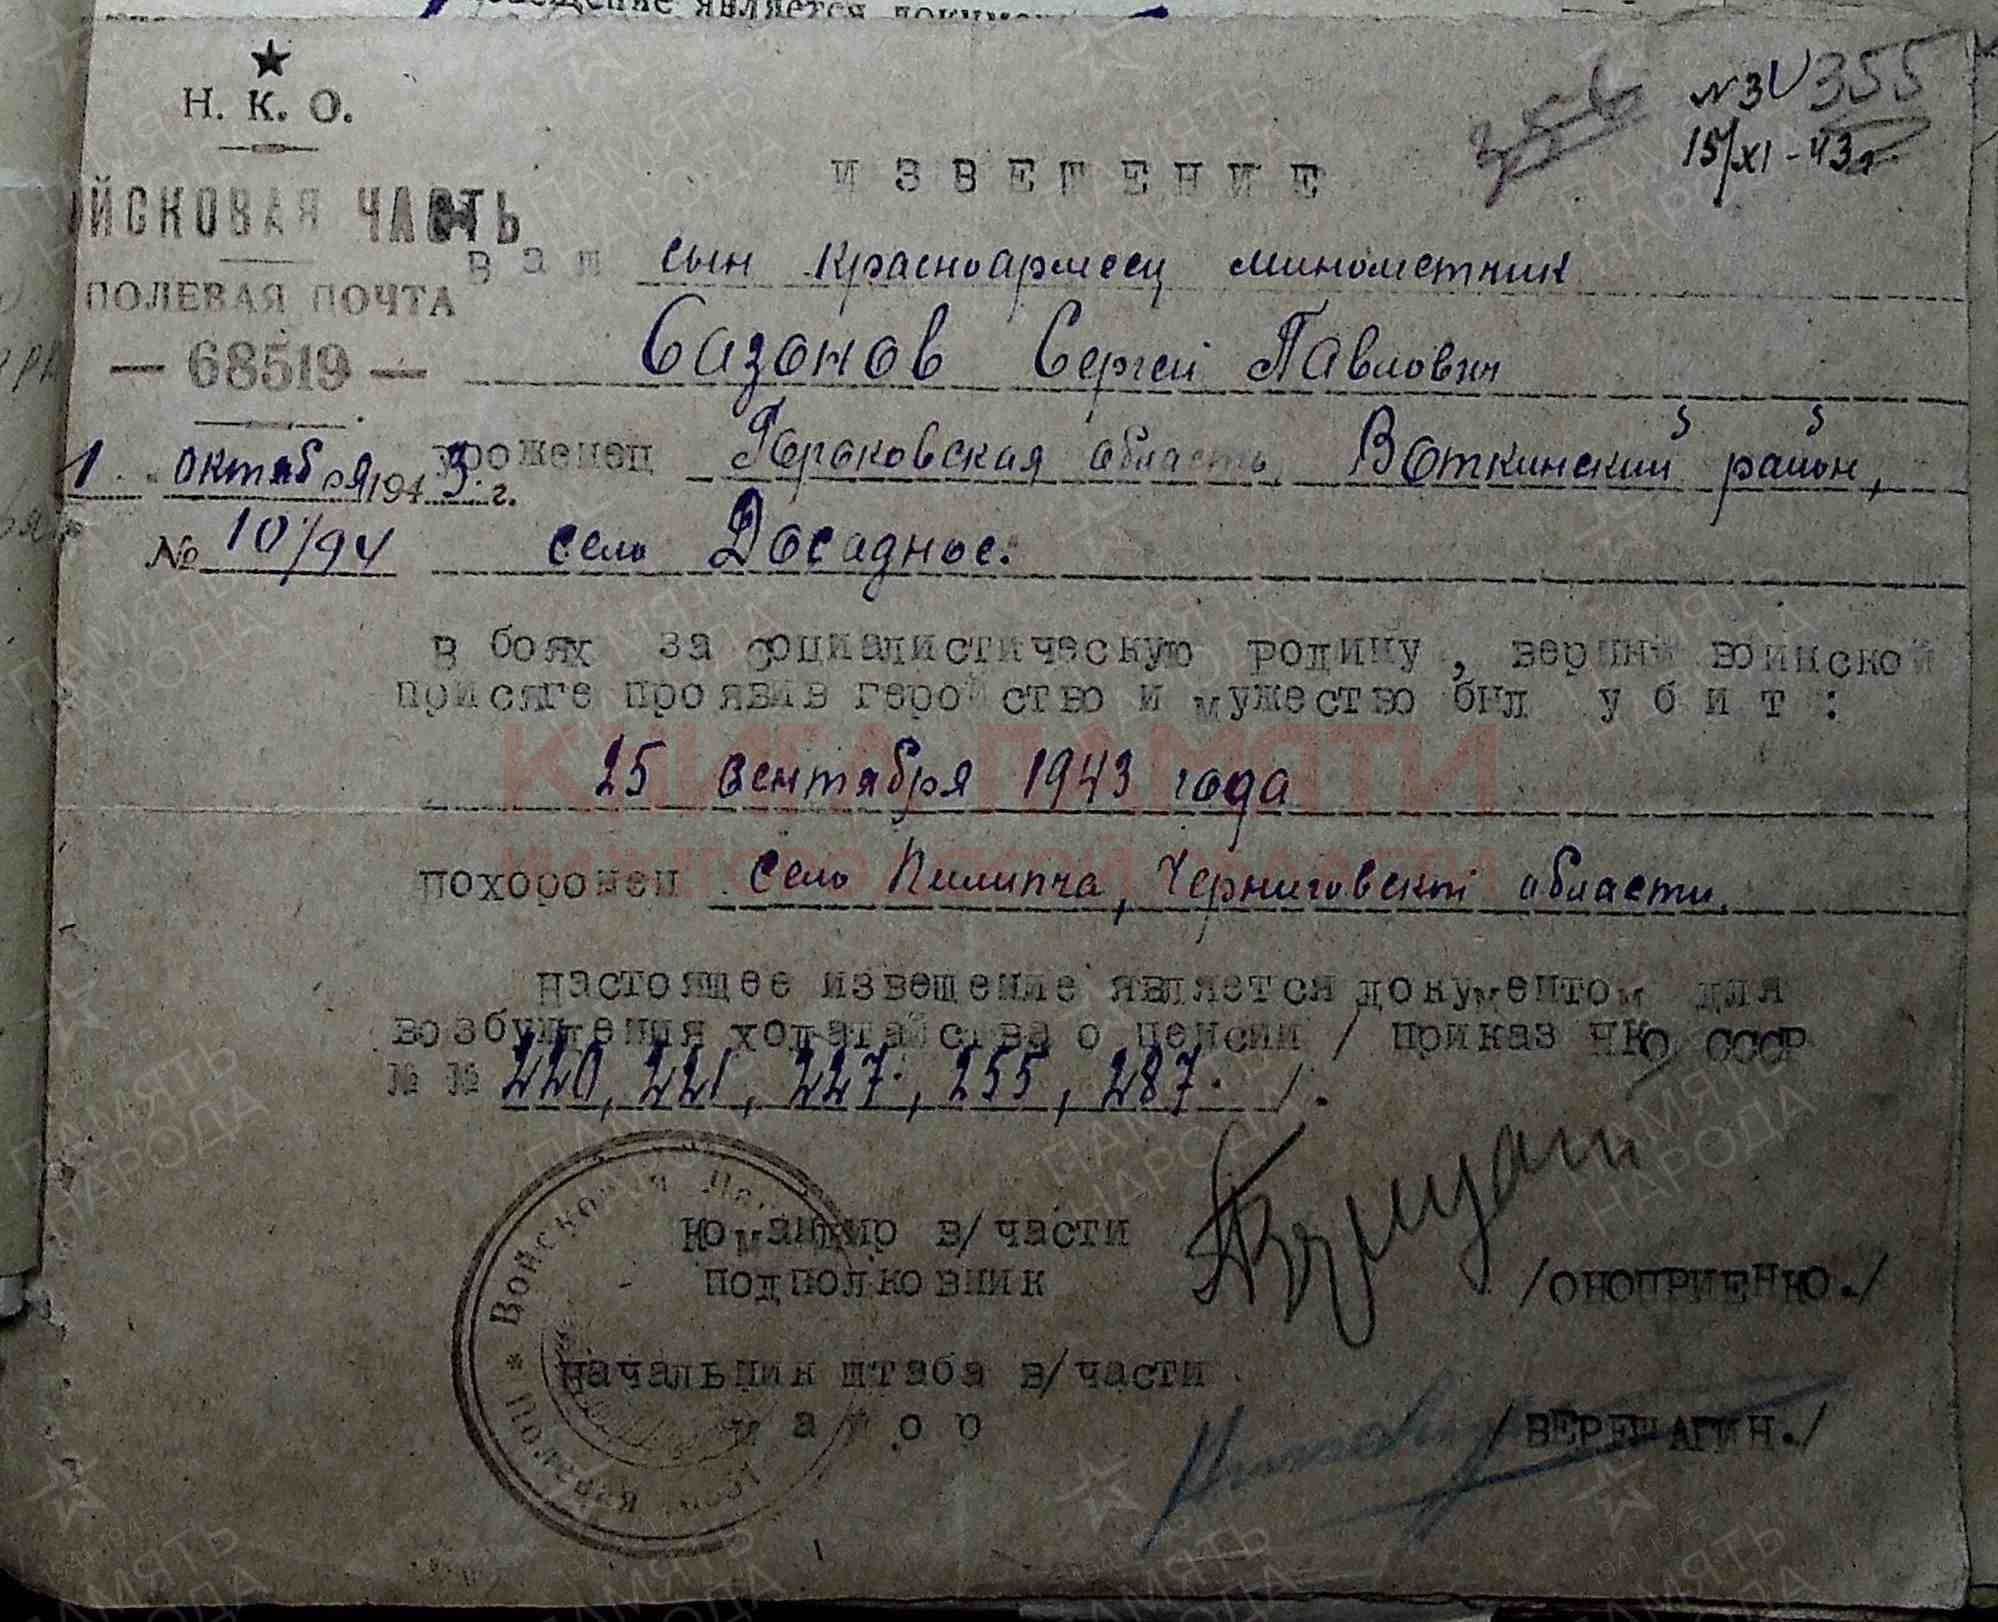 является
Н. К. О.
ВОЙСКОВАЯ ЧАСТЬ
ПОЛЕВАЯ ПОЧТА
— 68519 —
1 октября 1943 г.
№ 10/94
355
15/XI-43г.
ИЗВЕЩЕНИЕ
ваш сын красноармеец минометчик
Сазонов Сергей Павлович
уроженец Горьковская область, Воткинский район,
село Досадное.
в боях за социалистическую родину, верный воинской
присяге проявив геройство и мужество был убит:
25 сентября 1943 года
похоронен село Пилипча, Черниговской области.
настоящее извещение является документом для
возбуждения ходатайства о пенсии / приказ НКО СССР
№ № 220, 221, 227, 255, 287. /.
Командир в/части
подполковник /ОНОПРИЕНКО./
начальник штаба в/части
майор /ВЕРЕЩАГИН./
* Войсковая часть * Полевая почта
КНИГА ПАМЯТИ
НИЖЕГОРОДСКОЙ ОБЛАСТИ
ПАМЯТЬ НАРОДА